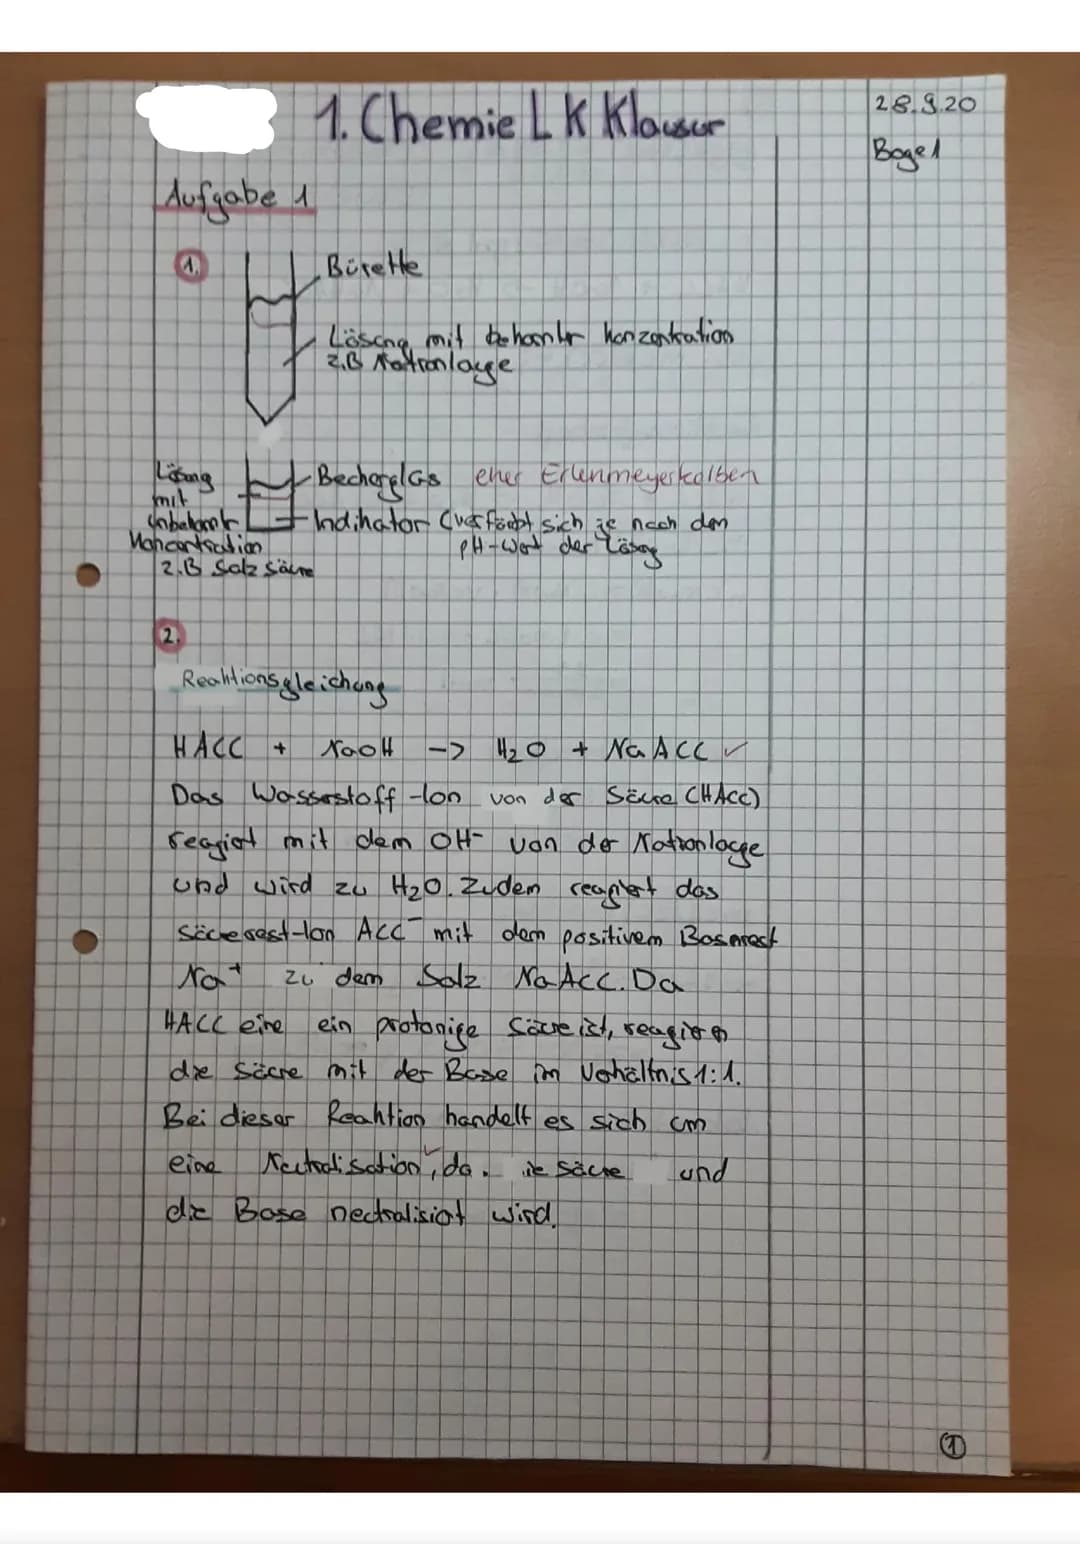 1. Chemie LK Klausur
28.9.20
Bogen 1
Aufgabe 1
1.
Bürette
Lösung mit bekannter Konzentration
z.B Natronlauge
Lösung
mit
unbekannter
Konzentration
z.B Salzsäure
Becherglas eher Erlenmeyerkolben
Indikator (verfärbt sich je nach dem
pH-Wert der Lösung
2.
Reaktionsgleichung
HACC + NaOH -> H₂O + NaACC ✓
Das Wasserstoff-Ion von der Säure (HAcc)
reagiert mit dem OH⁻ von der Natronlauge
und wird zu H₂O. Zudem reagiert das
Säurerest-Ion ACC⁻ mit dem positivem Basenrest
Na⁺ zu dem Salz NaACC. Da
HACC eine ein protonige Säure ist, reagieren
die Säure mit der Base im Verhältnis 1:1.
Bei dieser Reaktion handelt es sich um
eine Neutralisation ✓, da die Säure und
die Base neutralisiert wird.
1